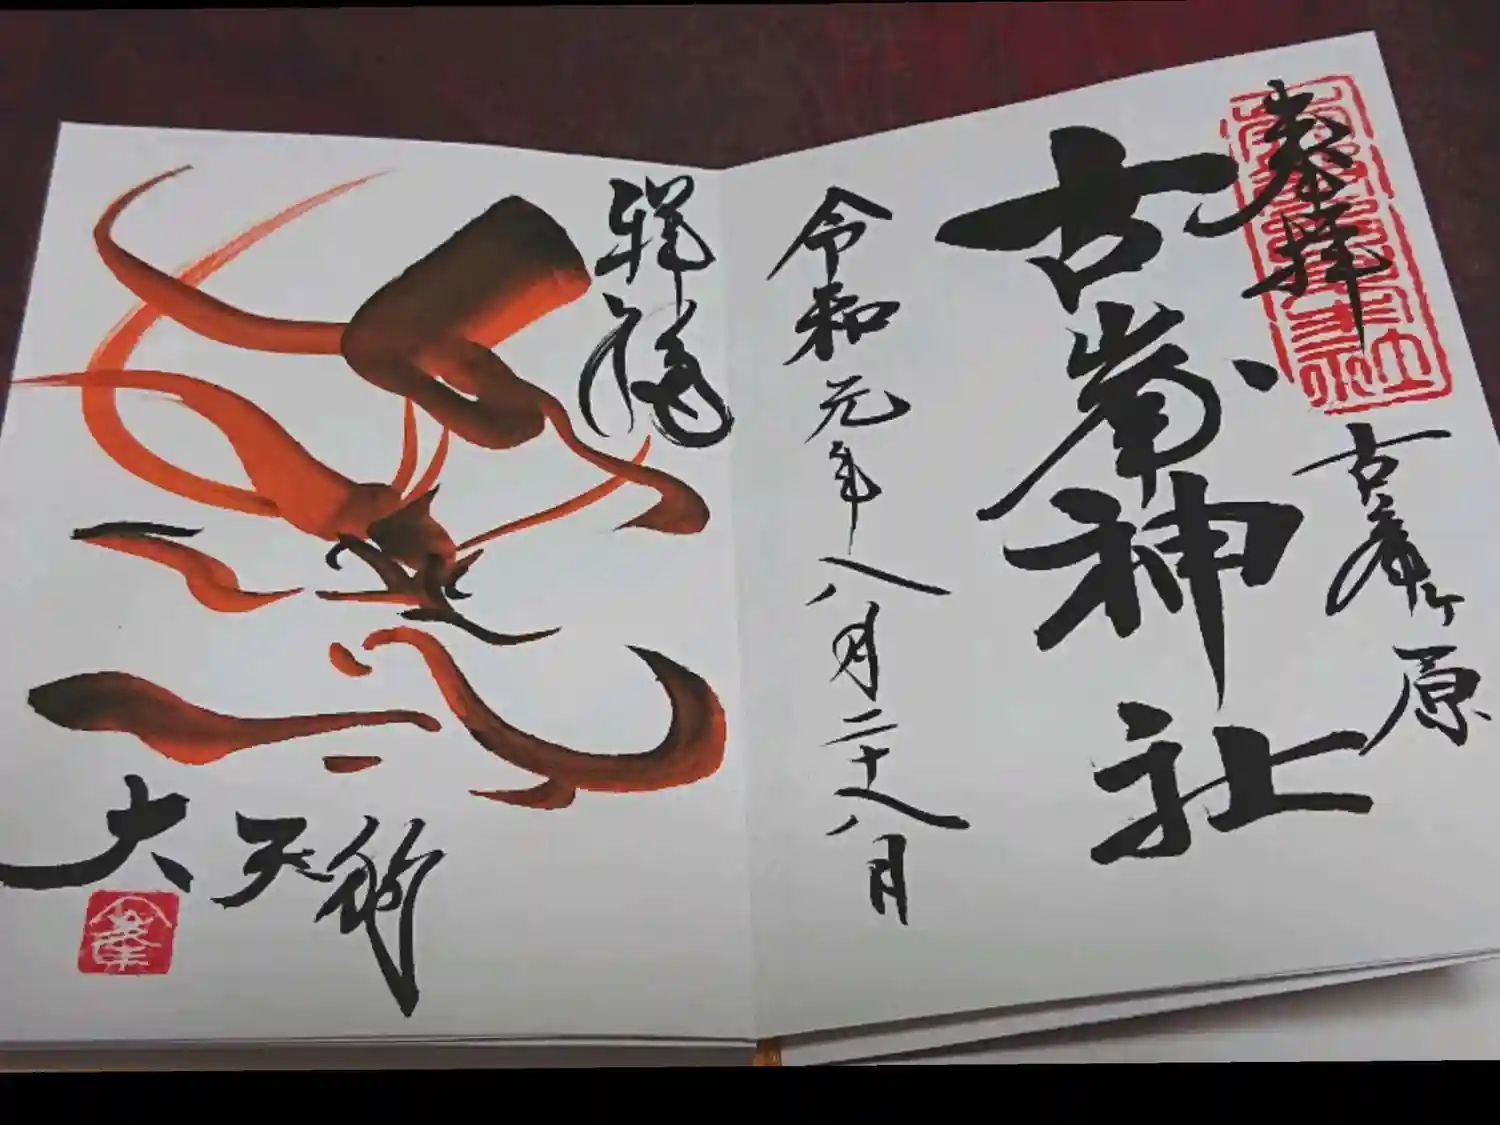 奉拝
古峯ヶ原
古峯神社
令和元年八月二十八日
祥福
大天狗